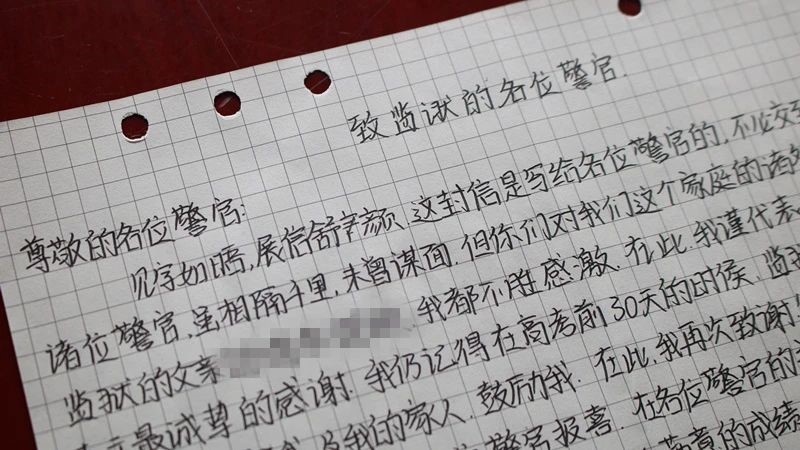 致监狱的各位警官.
尊敬的各位警官:
见字如晤,展信舒颜.这封信是写给各位警官的,不必交
诸位警官,虽相隔千里,未曾谋面,但你们对我们这个家庭的诸多
监狱的父亲 我都不胜感激.在此,我谨代表
最诚挚的感谢.我仍记得在高考前30天的时候,监狱
我的家人,鼓励我.在此,我再次致谢!
警官报喜.在各位警官的
满意的成绩